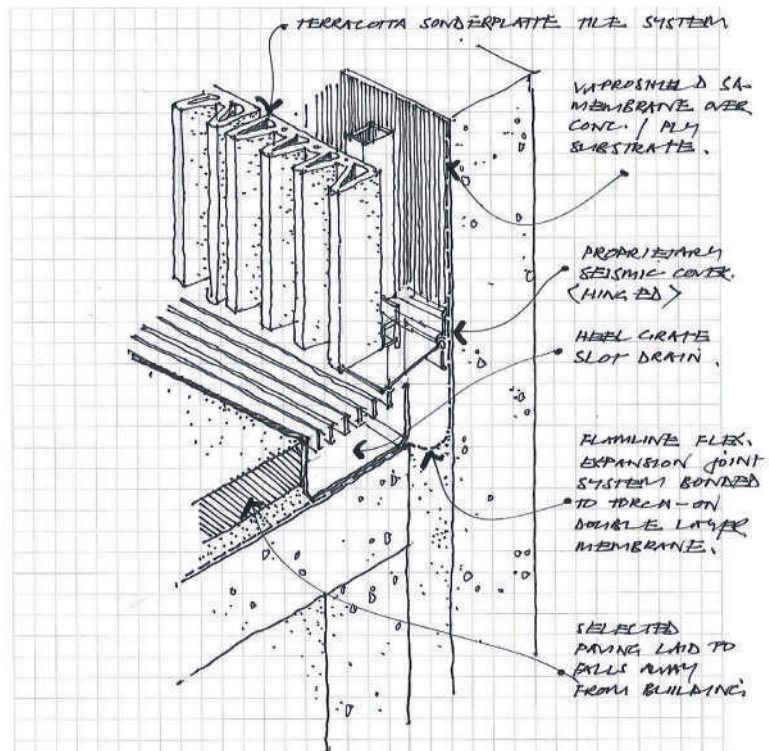 TERRACOTTA SONDERPLATTE TILE SYSTEM
VAPROSHIELD SA
MEMBRANE OVER
CONC. / PLY
SUBSTRATE.
PROPRIETARY
SEISMIC COVER.
<HINGED>
HEEL GRATE
SLOT DRAIN.
FLAMLINE FLEX.
EXPANSION JOINT
SYSTEM BONDED
TO TORCH-ON
DOUBLE LAYER
MEMBRANE.
SELECTED
PAVING LAID TO
FALLS AWAY
FROM BUILDING.